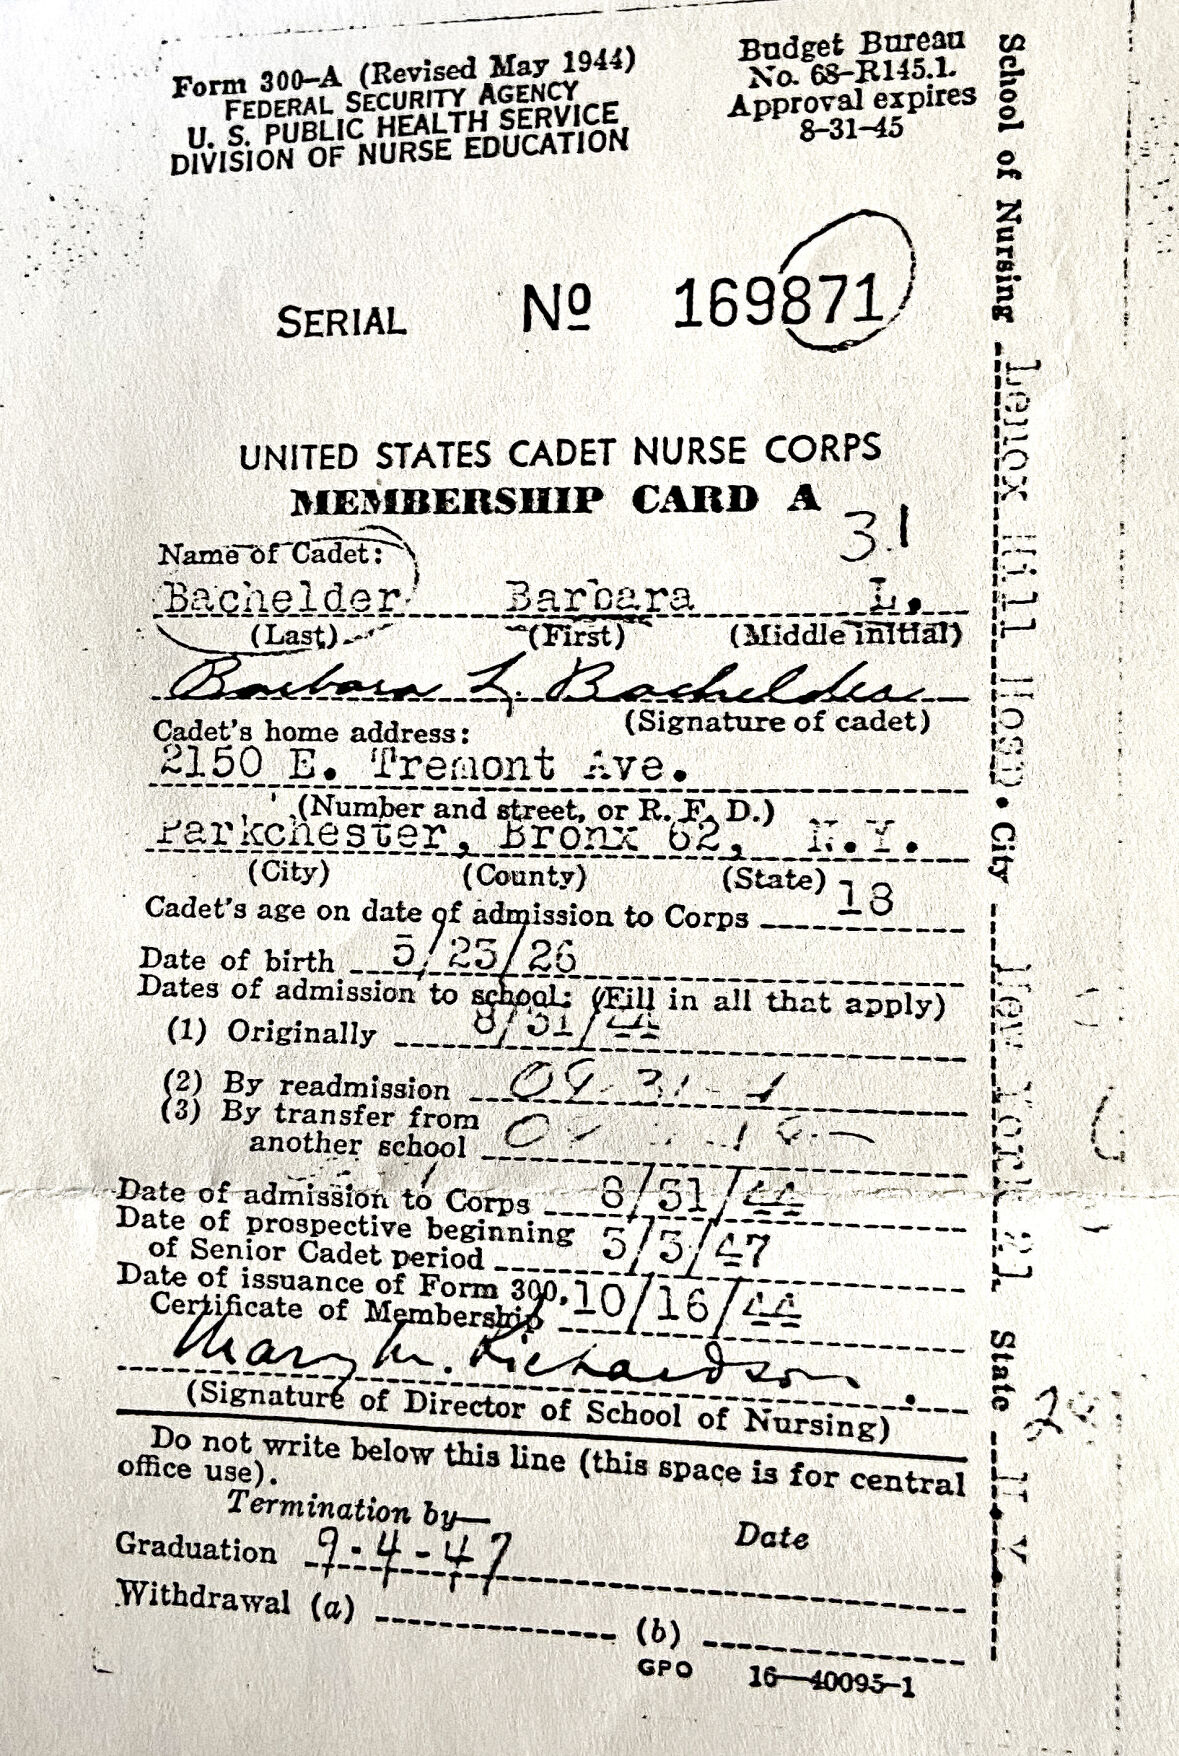 Form 300-A (Revised May 1944)
FEDERAL SECURITY AGENCY
U. S. PUBLIC HEALTH SERVICE
DIVISION OF NURSE EDUCATION
Budget Bureau
No. 68-R145.1.
Approval expires
8-31-45
SERIAL Nº 169871
UNITED STATES CADET NURSE CORPS
MEMBERSHIP CARD A
31
Name of Cadet:
Bachelder Barbara L.
(Last) (First) (Middle initial)
Barbara L. Bachelder
(Signature of cadet)
Cadet's home address:
2150 E. Tremont Ave.
(Number and street, or R. F. D.)
Parkchester, Bronx 62, N.Y.
(City) (County) (State)
Cadet's age on date of admission to Corps 18
Date of birth 5/23/26
Dates of admission to school: (Fill in all that apply)
(1) Originally 8/31/44
(2) By readmission
(3) By transfer from
another school
Date of admission to Corps 8/31/44
Date of prospective beginning
of Senior Cadet period 3/3/47
Date of issuance of Form 300,
Certificate of Membership 10/16/44
Mary M. Richardson
(Signature of Director of School of Nursing)
Do not write below this line (this space is for central
office use).
Termination by—
Date
Graduation 9-4-47
Withdrawal (a) (b)
GPO 16—40095-1
School of Nursing Lenox Hill Hosp. City New York 21 State N.Y.